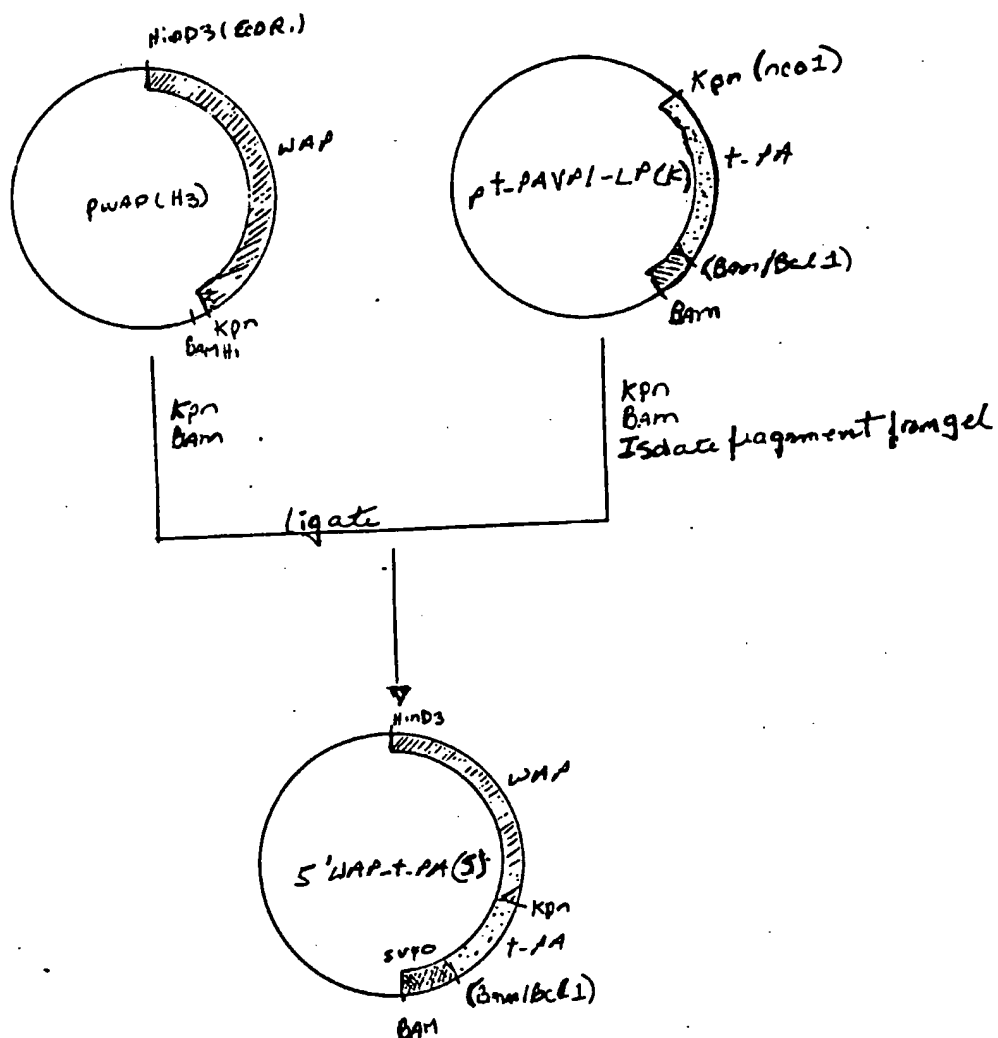 HinD3 (EcoR1)
WAP
pWAP(H3)
Kpn
BAMH1
Kpn (nco1)
t-PA
pt-PAVP1-LP(K)
(Bam/Bcl1)
BAM
Kpn
BAM
Kpn
BAM
Isolate fragment from gel
Ligate
HinD3
WAP
5'WAP-t-PA
Kpn
t-PA
SV40
(Bam/Bcl1)
BAM